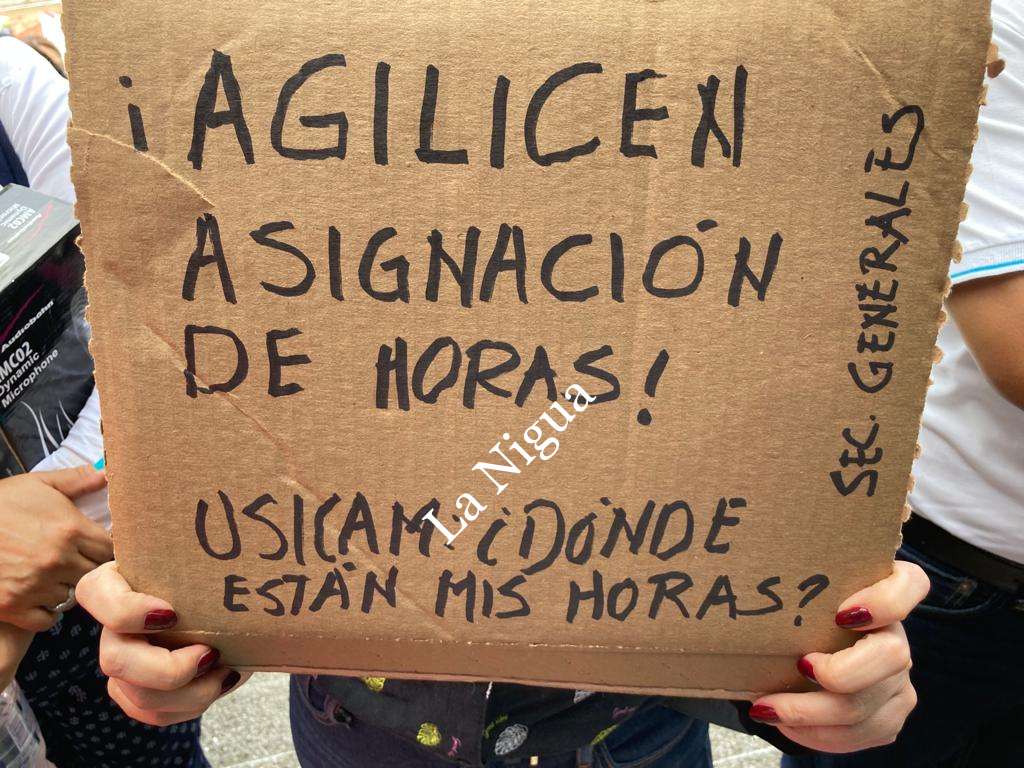 ¡AGILICEN
ASIGNACIÓN
DE HORAS!
USICAM: ¿DÓNDE
ESTÁN MIS HORAS?
SEC. GENERALES
La Nigua
Audiobahn
MC02
Dynamic
Microphone
AMC02
Dynamic